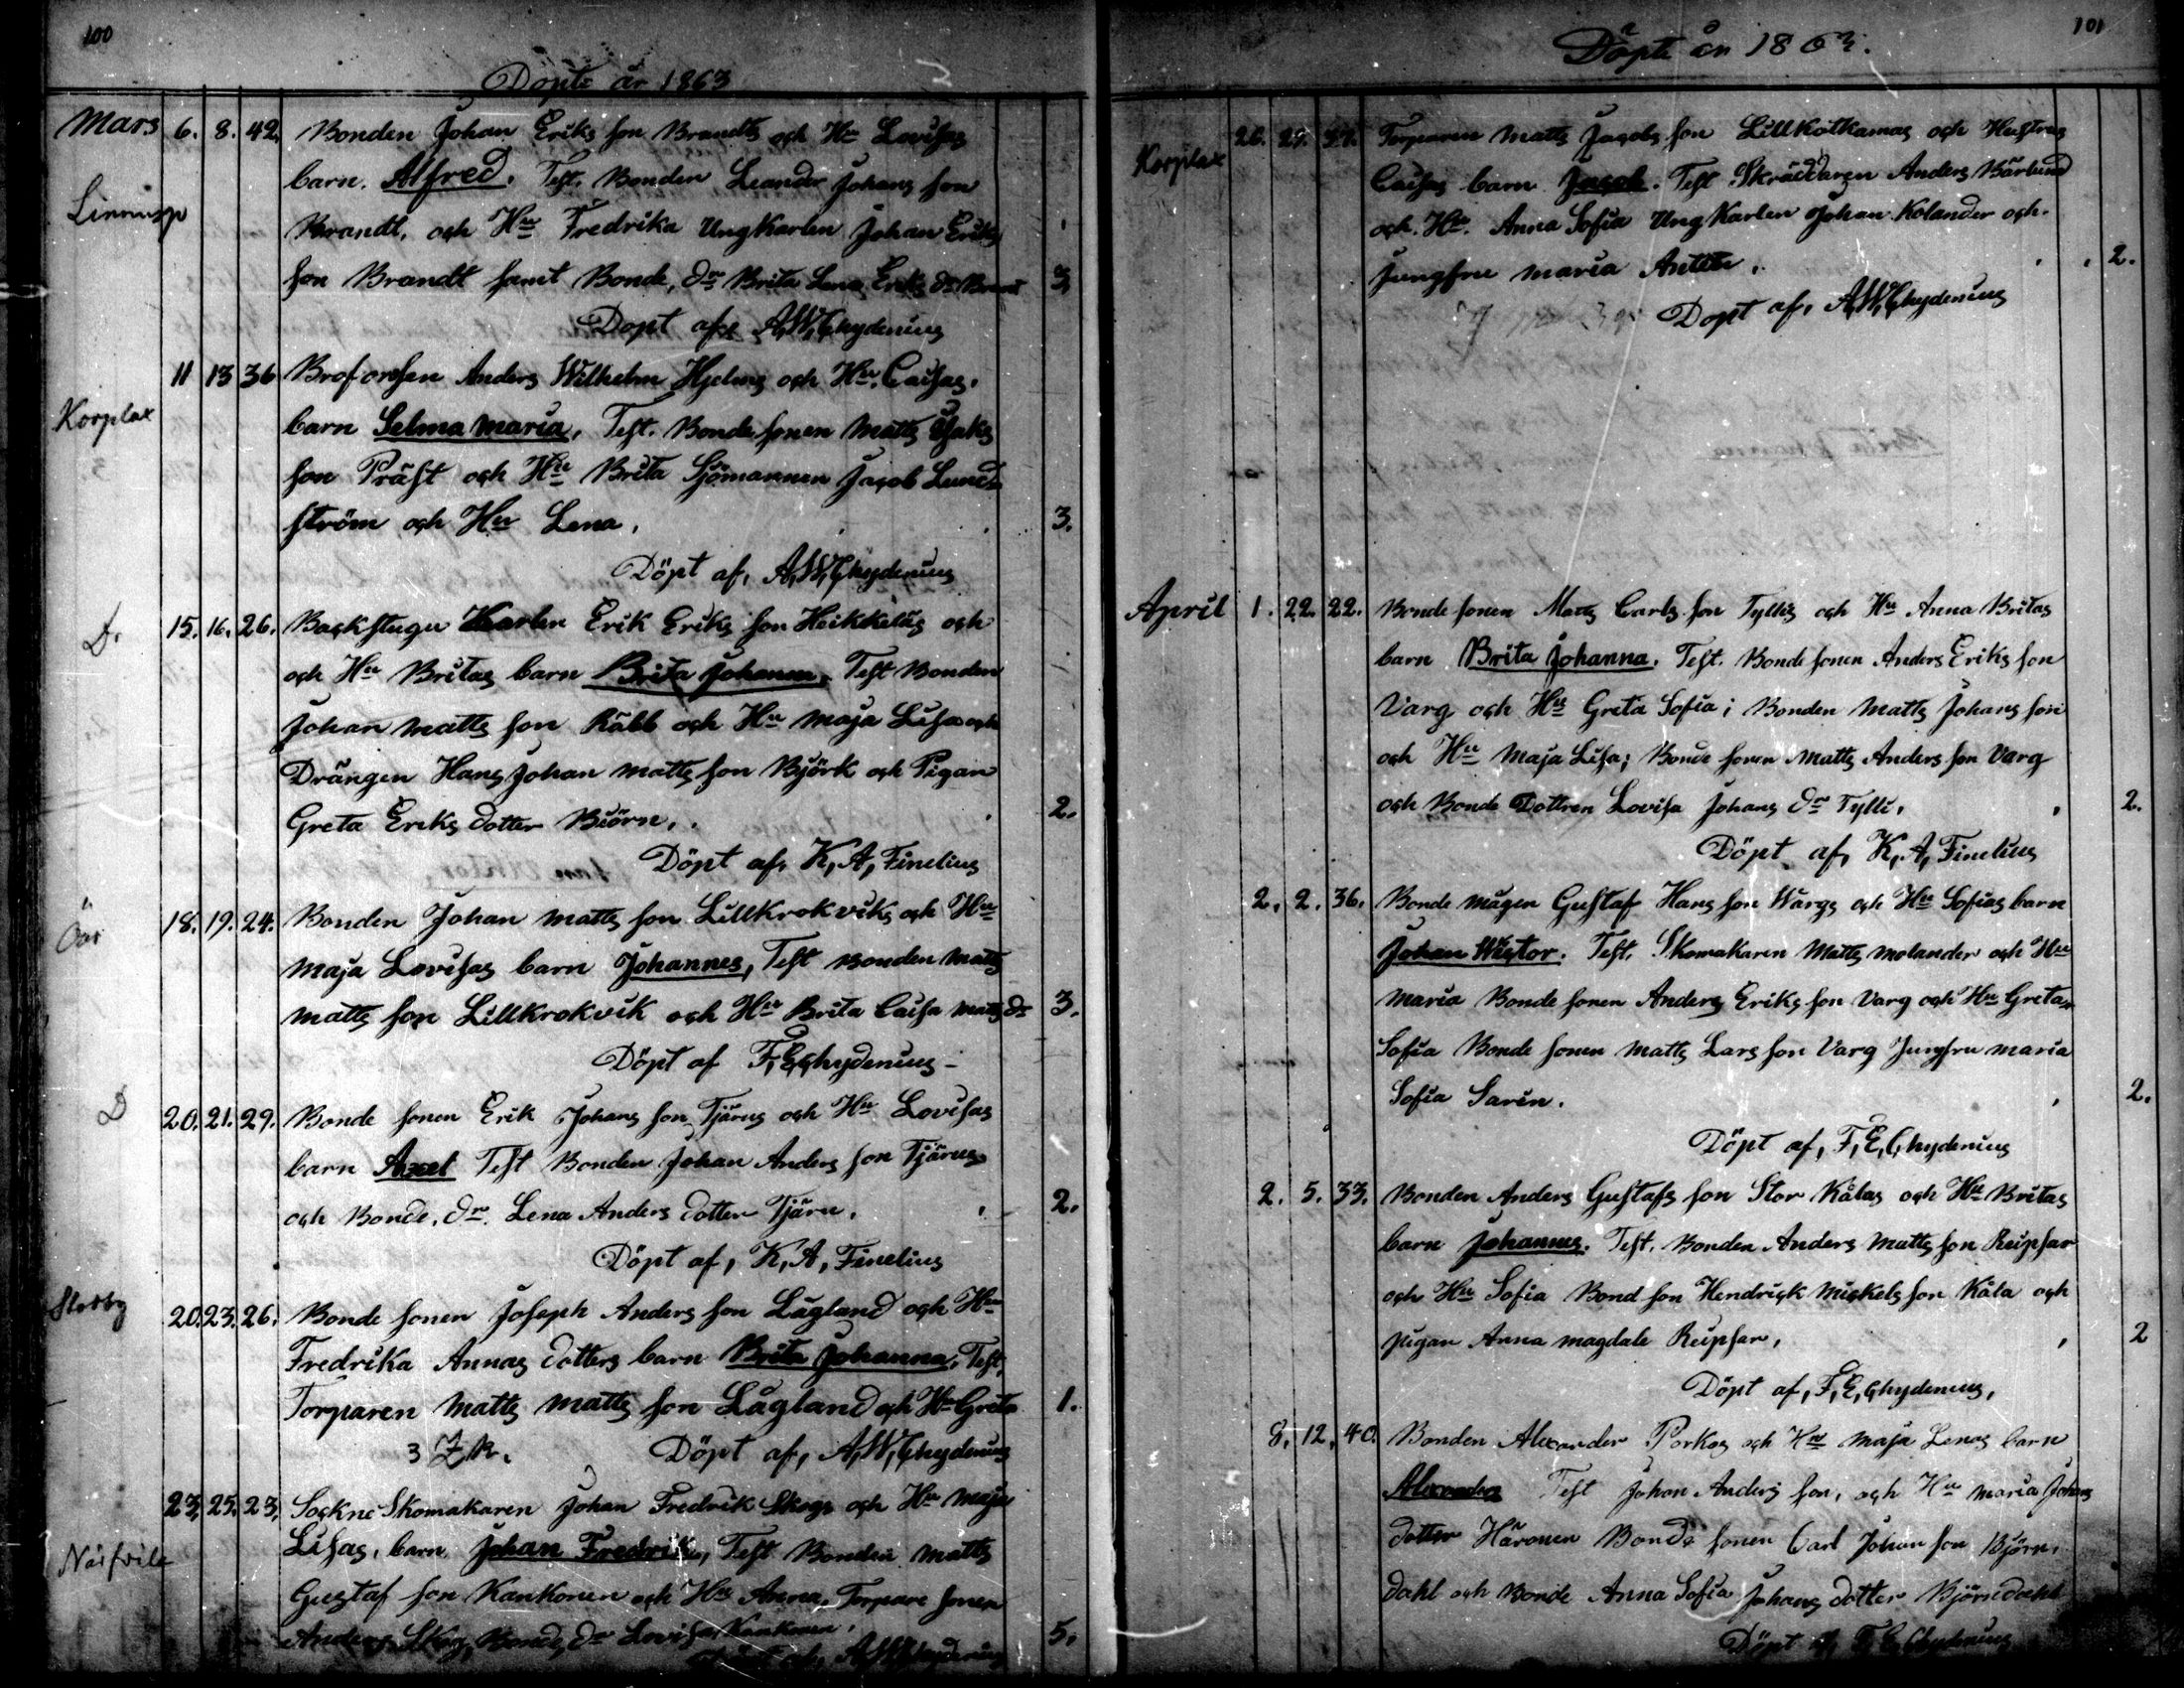 100
Döpte år 1863
Mars 6. 8. 42. Bonden Johan Eriks son Brandts och Hu Lovisas
barn. Alfred. Test. Bonden Leander Johans son
Linnusp
Brandt, och Hu Fredrika Ungkarlen Johan Eriks
son Brandt samt Bonde, dr Brita Lena Eriks dr Brandt 3,
Döpt af, A, W, Chydenius
11 13 36 Anders Wilhelm Hjelms och Hu. Caisas,
Korplax
barn Selma Maria, Test. Bonde sonen Matts Isaks
son Präst och Hu Brita Sjömannen Jacob Lund-
ström och Hu Lena, 3.
Döpt af, A, W, Chydenius
D. 15. 16. 26. Backstugu Karlen Erik Eriks son Heikkeläs och
och Hu Britas barn Brita Johanna, Test Bonden
Johan Matts son Räbb och Hu Maja Lisa och
Drängen Hans Johan Matts son Björk och Pigan
Greta Eriks dotter Biörn, 2.
Döpt af, K, A, Finelius
18. 19. 24. Bonden Johan Matts son Lillkrokviks och Hu
Maja Lovisas barn Johannes, Test Bonden Matts
Matts son Lillkrokvik och Hu Brita Caisa Matts dr 3.
Döpt af F, E, Chydenius
D 20. 21. 29. Bonde sonen Erik Johans son Tjärns och Hu Lovisas
barn Axel Test Bonden Johan Anders son Tjärns
och Bonde, dr. Lena Anders dotter Tjärn. 2.
Döpt af, K, A, Finelius
20. 23. 26. Bonde sonen Joseph Anders son Lågland och Hu
Fredrika Annas dotters barn Brita Johanna, Test,
Torparen Matts Matts son Lågland och Hu Greta 1.
Döpt af, A, W, Chydenius
23, 25. 23, Sockne Skomakaren Johan Fredrik Skogs och Hu Maja
Lisas, barn Johan Fredrik, Test Bonden Matts
Gustaf son Kankonen och Hu Anna, Torpare sonen
Anders Skog, Bonde, dr Lovisa Kankonen, 5.
A, W, Chydenius
101
Döpte år 1863.
26. 29. Torparen Matts Jacobs son Lillkotkamas och Hustrus
Korplax
Caisas barn Jacob. Test Skräddaren Anders Bärlund
och. Hu. Anna Sofia Ung Karlen Johan Kolander och.
Jungfru Maria Antila. 2.
Döpt af, A, W, Chydenius
April 1. 22. 22. Bonde sonen Matts Carls son Tyllis och Hu Anna Britas
barn Brita Johanna. Test. Bonde sonen Anders Eriks son
Varg och Hu Greta Sofia; Bonden Matts Johans son
och Hu Maja Lisa; Bonde sonen Matts Anders son Varg
och Bonde Dottren Lovisa Johans dr Tylli, 2.
Döpt af, K, A, Finelius
2. 2. 36. Bonde mågen Gustaf Hans son Wargs och Hu Sofias barn
Johan Wictor. Test. Skomakaren Matts Molander och Hu
Maria Bonde sonen Anders Eriks son Varg och Hu Greta
Sofia Bonde sonen Matts Lars son Varg Jungfru Maria
Sofia Sarin. 2.
Döpt af, F, E, Chydenius
2. 5. 33. Bonden Anders Gustafs son Stor Kålas och Hu Britas
barn Johannes. Test. Bonden Anders Matts son Reipsar
och Hu Sofia Bond son Hendrick Mickels son Kåla och
pigan Anna Magdale Reipsar, 2
Döpt af, F, E, Chydenius,
8, 12, 40. Bonden Alexander Porkos och Hu Maja Lenas barn
Alexander Test Johan Anders son, och Hu Maria Johans
dotter Häronen Bonde sonen Carl Johan son Björn,
dahl och Bonde Anna Sofia Johans dotter Björndahl
Döpt af F, E, Chydenius